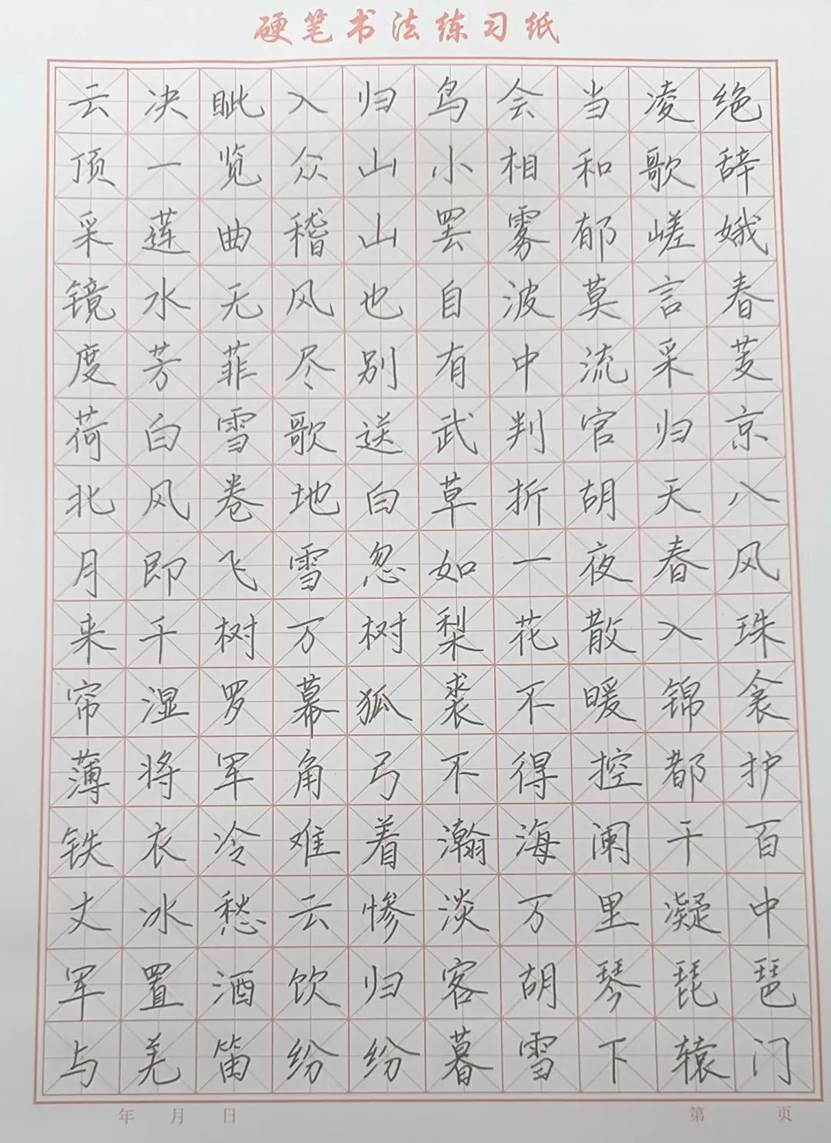 硬笔书法练习纸
云决眦入归鸟会当凌绝
顶一览众山小相和歌辞
采莲曲稽山罢雾郁嵯娥
镜水无风也自波莫言春
度芳菲尽别有中流采芰
荷白雪歌送武判官归京
北风卷地白草折胡天八
月即飞雪忽如一夜春风
来千树万树梨花散入珠
帘湿罗幕狐裘不暖锦衾
薄将军角弓不得控都护
铁衣冷难着瀚海阑干百
丈冰愁云惨淡万里凝中
军置酒饮归客胡琴琵琶
与羌笛纷纷暮雪下辕门
年 月 日 第 页